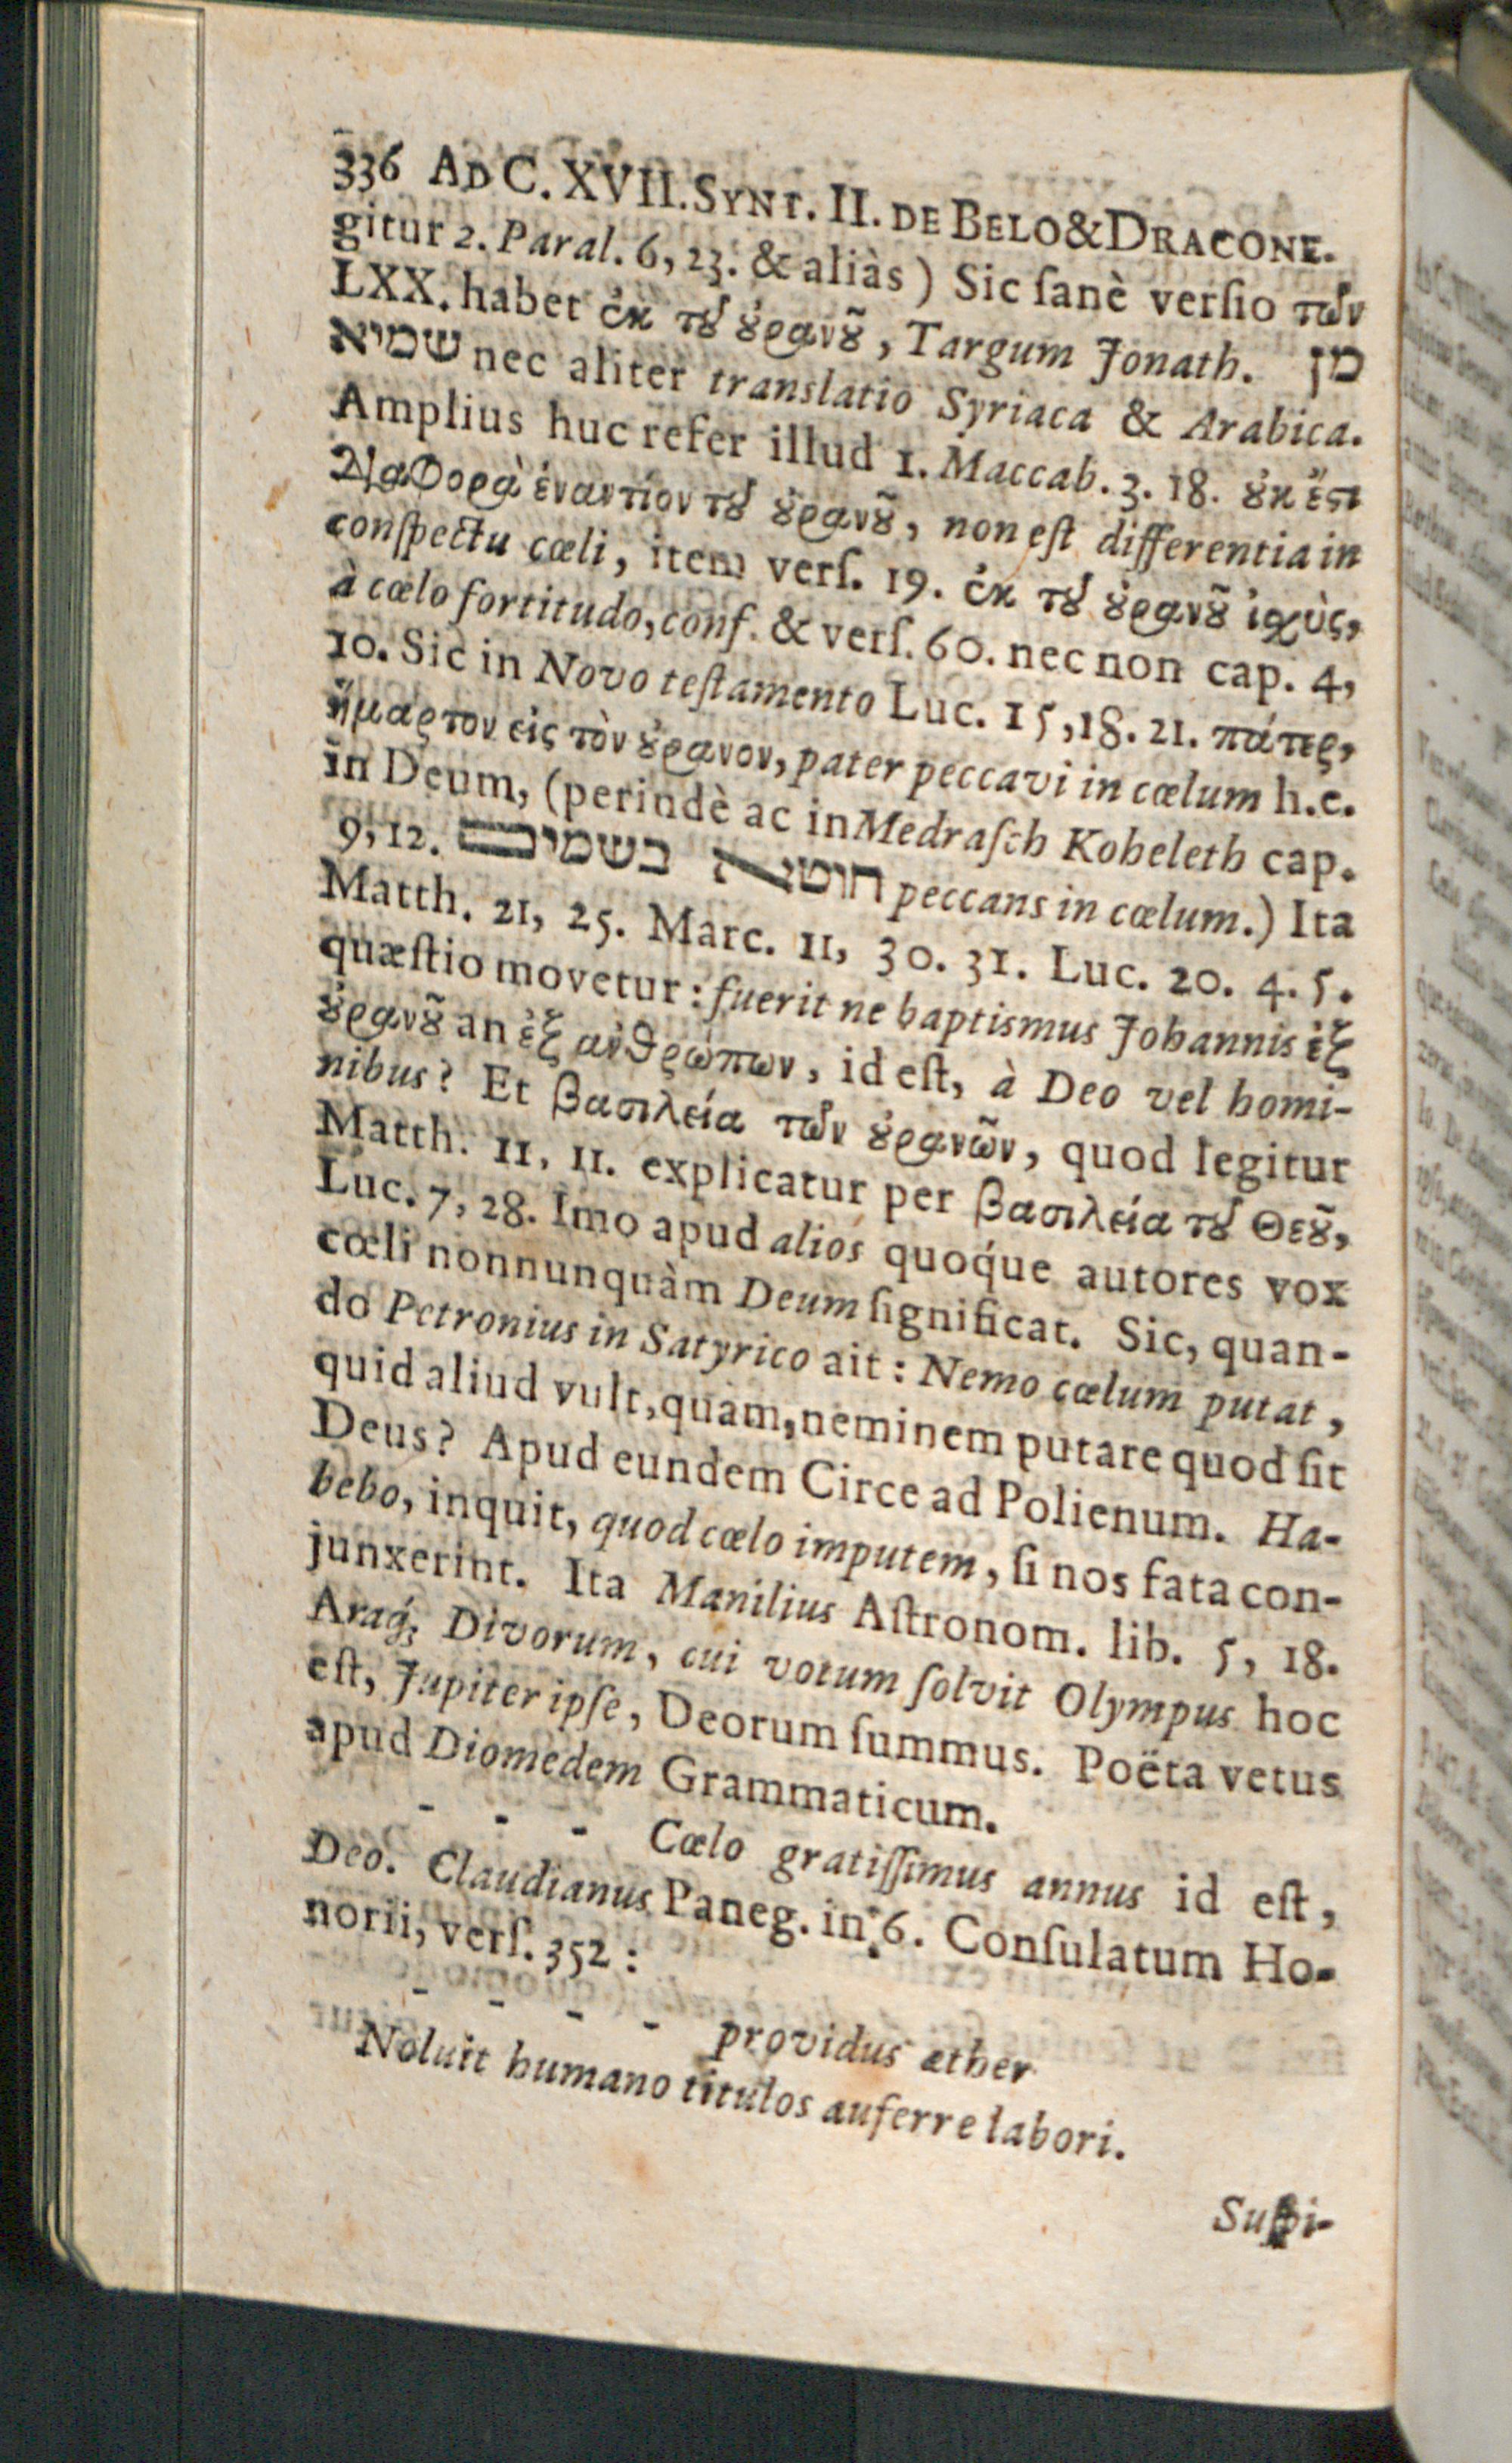 336 AD C. XVII. SYNT. II. DE BELO & DRACONE.
gitur 2. Paral. 6, 23. & aliàs) Sic ſanè verſio τῶν
LXX. habet ἐκ τȣ͂ ȣ̓ρανȣ͂, Targum Jonath. מן
שמיא nec aliter translatio Syriaca & Arabica.
Amplius huc refer illud 1. Maccab. 3. 18. ȣ̓κ ἔστι
διαφορὰ ἐναντίον τȣ͂ ȣ̓ρανȣ͂, non eſt differentia in
conſpectu cœli, item verſ. 19. ἐκ τȣ͂ ȣ̓ρανȣ͂ ἰσχὺς,
à cœlo fortitudo, conf. & verſ. 60. nec non cap. 4,
10. Sic in Novo teſtamento Luc. 15, 18. 21. πάτερ,
ἥμαρτον εἰς τὸν ȣ̓ρανον, pater peccavi in cœlum h. e.
in Deum, (perindè ac in Medraſch Koheleth cap.
9, 12. חוטא בשמים peccans in cœlum.) Ita
Matth. 21, 25. Marc. 11, 30. 31. Luc. 20. 4. 5.
quæſtio movetur: fuerit ne baptismus Johannis ἐξ
ȣ̓ρανȣ͂ an ἐξ ἀνθρώπων, id eſt, à Deo vel homi-
nibus? Et βασιλεία τῶν ȣ̓ρανῶν, quod legitur
Matth. 11, 11. explicatur per βασιλεία τȣ͂ Θεȣ͂,
Luc. 7, 28. Imo apud alios quoque autores vox
cœli nonnunquàm Deum ſignificat. Sic, quan-
do Petronius in Satyrico ait: Nemo cœlum putat,
quid aliud vult, quàm, neminem putare quod ſit
Deus? Apud eundem Circe ad Polienum. Ha-
bebo, inquit, quod cœlo imputem, ſi nos fata con-
junxerint. Ita Manilius Aſtronom. lib. 5, 18.
Araq; Divorum, cui votum ſolvit Olympus hoc
eſt, Jupiter ipſe, Deorum ſummus. Poëta vetus
apud Diomedem Grammaticum.
- - - Cœlo gratiſſimus annus id eſt,
Deo. Claudianus Paneg. in 6. Conſulatum Ho-
norii, verſ. 352:
- - - - providus æther
Noluit humano titulos auferre labori.
Suſpi-